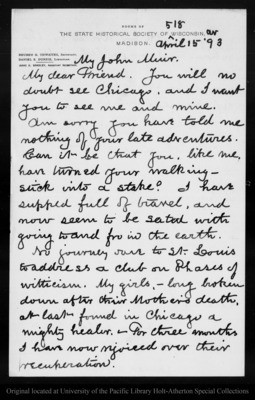 ROOMS OF
518
THE STATE HISTORICAL SOCIETY OF WISCONSIN,
MADISON. April 15 '93
REUBEN G. THWAITES,
DANIEL S. DURRIE,
My John Muir.
My dear Friend. You will no
doubt see Chicago, and I want
you to see me and mine.
Am sorry you have told me
nothing of your late adventures.
Can it be that you, like me,
have turned your walking-
stick into a stake? I have
supped full of travel, and
now seem to be sated with
going to and fro in the earth.
No journey save to St. Louis
to address a club on Phases of
witticism. My girls, - long broken
down after their Mother's death,
at last found in Chicago a
mighty healer. - For three months
I have now rejoiced over their
recuperation.
Original located at University of the Pacific Library Holt-Atherton Special Collections